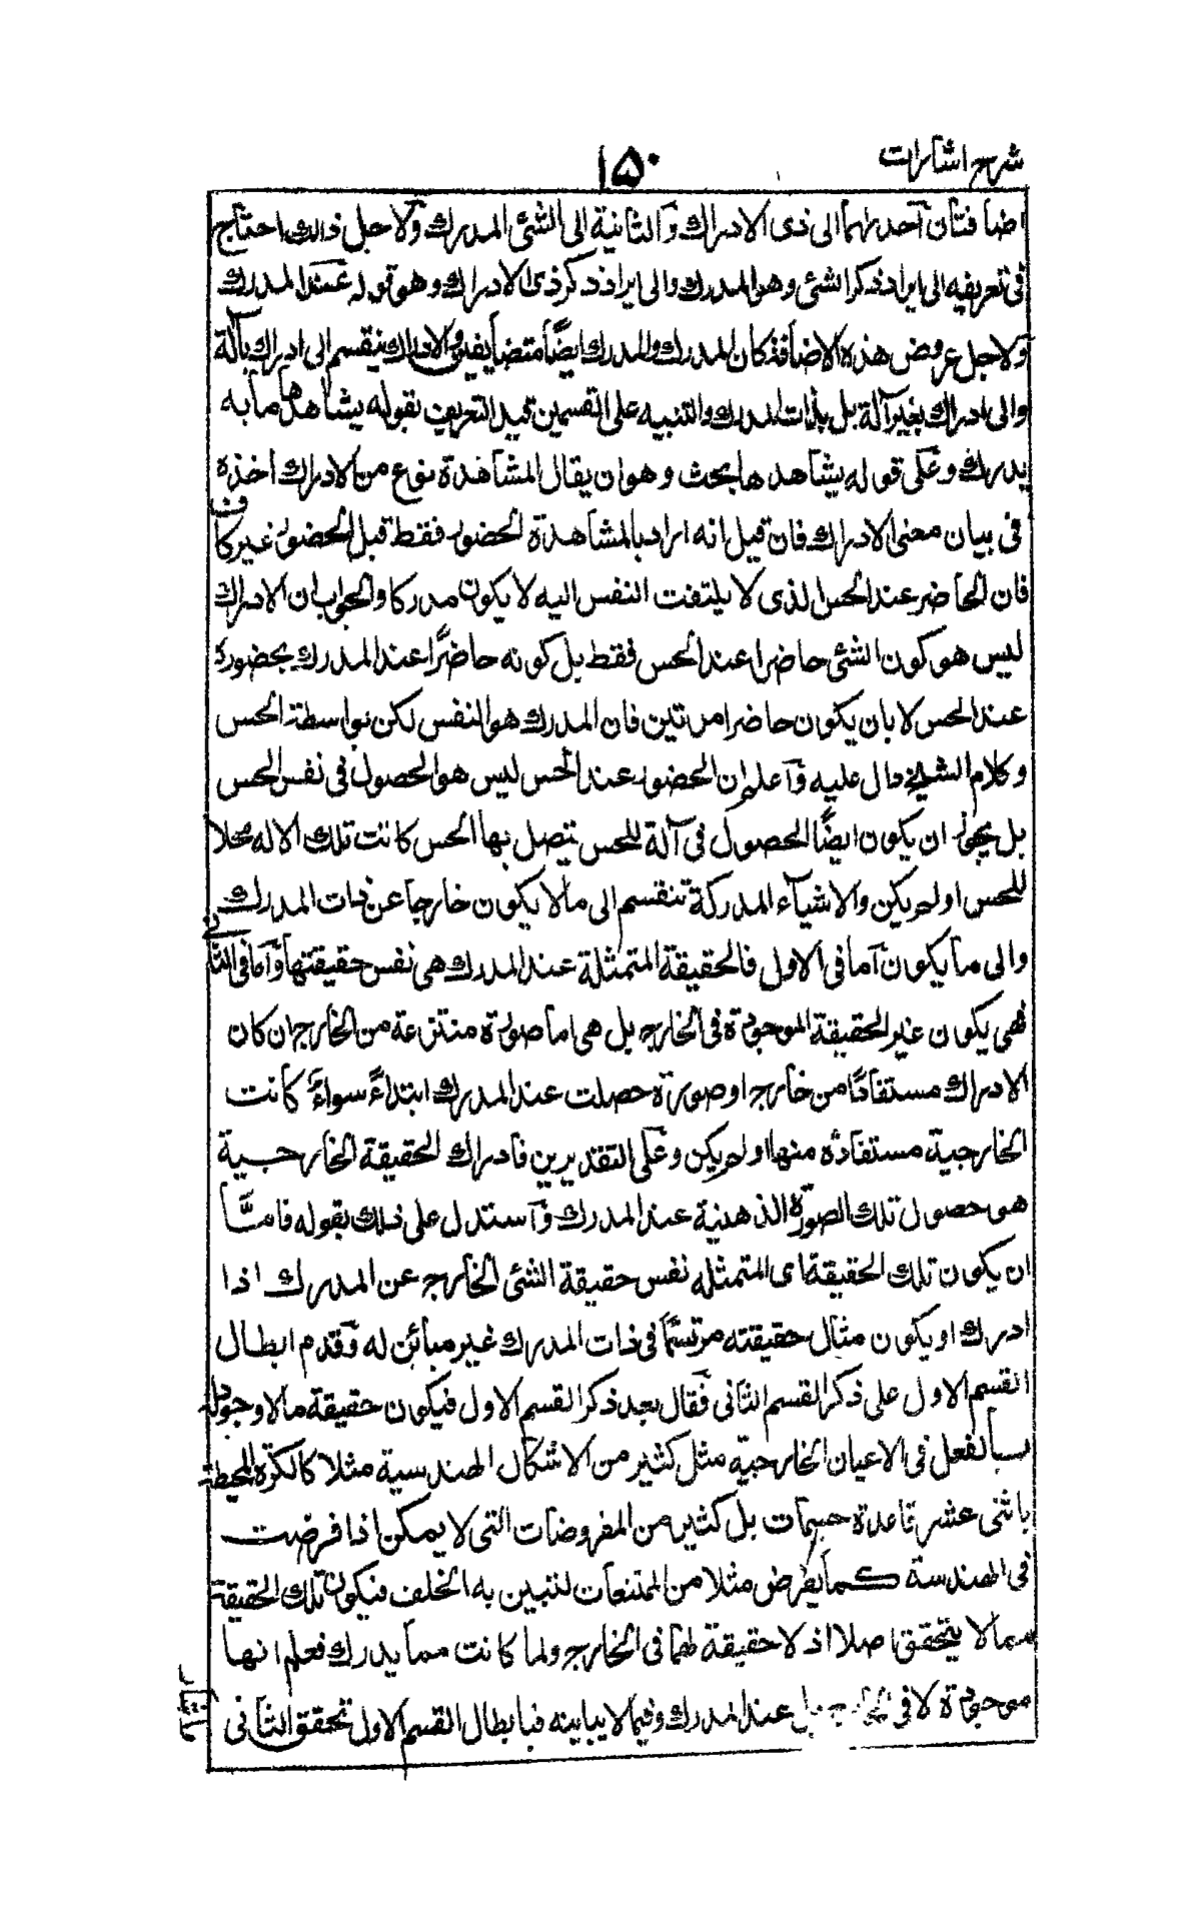 شرح اشارات
۱۵۰
اضافتان احدىهما الى ذى الادراك والثانية الى الشئ المدرك ولاجل ذالك احتاج
فى تعريفه الى ايراد ذكر الشئ وهو المدرك والى ايراد ذكر ذى الادراك وهو قوله عند المدرك
ولاجل عروض هذه الاضافة كان المدرك والمدرك ايضًا متضايفين والادراك ينقسم الى ادراك بآلة
والى ادراك بغير آلة بل بذات المدرك والتنبيه على القسمين قيد التعريف بقوله يشاهدها ما به
يدرك وعلى قوله يشاهدها بحث وهو ان يقال المشاهدة نوع من الادراك اخذه
فى بيان معنى الادراك فان قيل انه اراد بالمشاهدة الحضور فقط قبل الحضور غير كاف
فان الحاضر عند الحس الذى لا يلتفت النفس اليه لا يكون مدركا والجواب ان الادراك
ليس هو كون الشئ حاضرا عند الحس فقط بل كونه حاضرًا عند المدرك بحضوره
عند الحس لا بان يكون حاضرا مرتين فان المدرك هو النفس لكن بواسطة الحس
وكلام الشيخ دال عليه واعلم ان الحضور عند الحس ليس هو الحصول فى نفس الحس
بل يجوز ان يكون ايضًا الحصول فى آلة للحس يتصل بها الحس كانت تلك الاله محلا
للحس او لم يكن والاشياء المدركة تنقسم الى ما لا يكون خارجا عن ذات المدرك
والى ما يكون اما فى الاول فالحقيقة المتمثلة عند المدرك هى نفس حقيقتها واما فى الثانى
فهى يكون غير الحقيقة الموجودة فى الخارج بل هى اما صورة منتزعة من الخارج ان كان
الادراك مستفادًا من خارج او صورة حصلت عند المدرك ابتداءً سواءً كانت
الخارجية مستفادة منها او لم يكن وعلى التقديرين فادراك الحقيقة الخارجية
هو حصول تلك الصورة الذهنية عند المدرك واستدل على ذلك بقوله فامّا
ان يكون تلك الحقيقة اى المتمثله نفس حقيقة الشئ الخارج عن المدرك اذا
ادرك او يكون مثال حقيقته مرتسمًا فى ذات المدرك غير مبائن له وقدم ابطال
القسم الاول على ذكر القسم الثانى فقال بعد ذكر القسم الاول فيكون حقيقة ما لا وجود له
بالفعل فى الاعيان الخارجية مثل كثير من الاشكال الهندسية مثلا كالكرة المحيطة
باثنى عشر قاعدة مجسمات بل كثير من المفروضات التى لا يمكن اذا فرضت
فى الهندسة كما يفرض مثلا من الممتنعات لتبين به الخلف فيكون تلك الحقيقة
مما لا يتحقق اصلا اذ لا حقيقة لها فى الخارج ولما كانت مما يدرك فعلم انها
موجودة لا فى الخارج بل عند المدرك وفيما لا يباينه فبابطال القسم الاول تحقق الثانى